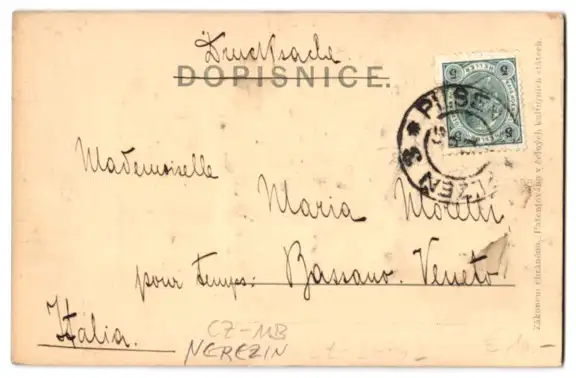 Drucksache
DOPISNICE.
PILSEN
PLZEŇ 3
5 5
5 5
Mademoiselle
Maria Moletti
pour temps: Bassano. Veneto
Itália.
CZ-MB
NEREZIN
Zákonem chráněno. Patentováno v celých kulturních státech.